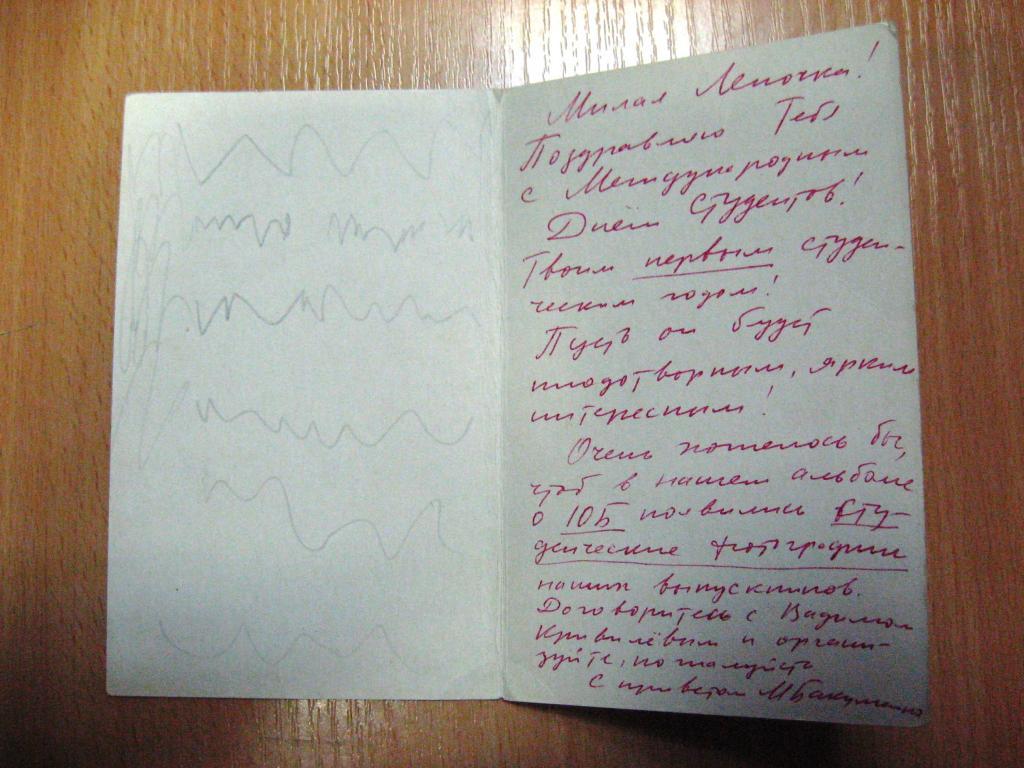 Милая Леночка!
Поздравляю Тебя
с Международным
Днём Студентов!
Твоим первым студен-
ческим годом!
Пусть он будет
плодотворным, ярким
интересным!
Очень хотелось бы,
чтоб в нашем альбоме
о 10Б появились сту-
денческие фотографии
наших выпускников.
Договоритесь с Вадимом
Кривилёвым и органи-
зуйте, пожалуйста
С приветом М Бакуменко